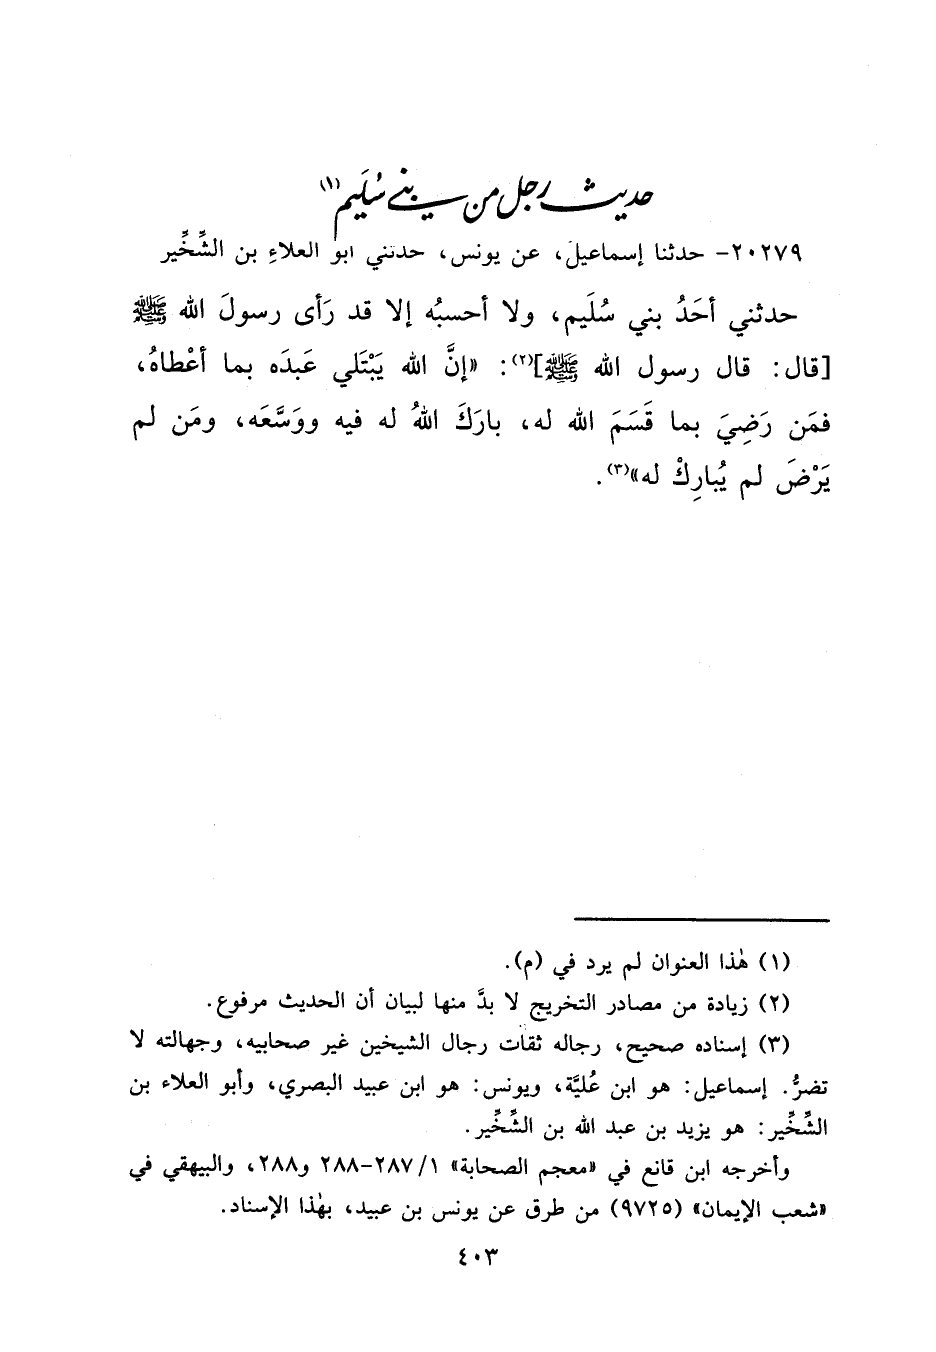 حديث رجل من بني سُلَيم(١)
٢٠٢٧٩- حدثنا إسماعيلُ، عن يونس، حدثني أبو العلاءِ بن الشِّخِّير
حدثني أحَدُ بني سُلَيم، ولا أحسبُه إلا قد رَأى رسولَ الله ﷺ
[قال: قال رسول الله ﷺ](٢): «إنَّ الله يَبْتَلي عَبدَه بما أعْطاهُ،
فمَن رَضِيَ بما قَسَمَ الله له، بارَكَ اللهُ له فيه ووَسَّعَه، ومَن لم
يَرْضَ لم يُبارِكْ له»(٣).
(١) هٰذا العنوان لم يرد في (م).
(٢) زيادة من مصادر التخريج لا بدَّ منها لبيان أن الحديث مرفوع.
(٣) إسناده صحيح، رجاله ثقات رجال الشيخين غير صحابيه، وجهالته لا
تضرُّ. إسماعيل: هو ابن عُليَّة، ويونس: هو ابن عبيد البصري، وأبو العلاء بن
الشِّخِّير: هو يزيد بن عبد الله بن الشِّخِّير.
وأخرجه ابن قانع في «معجم الصحابة» ١/ ٢٨٧-٢٨٨ و٢٨٨، والبيهقي في
«شعب الإيمان» (٩٧٢٥) من طرق عن يونس بن عبيد، بهٰذا الإسناد.
٤٠٣